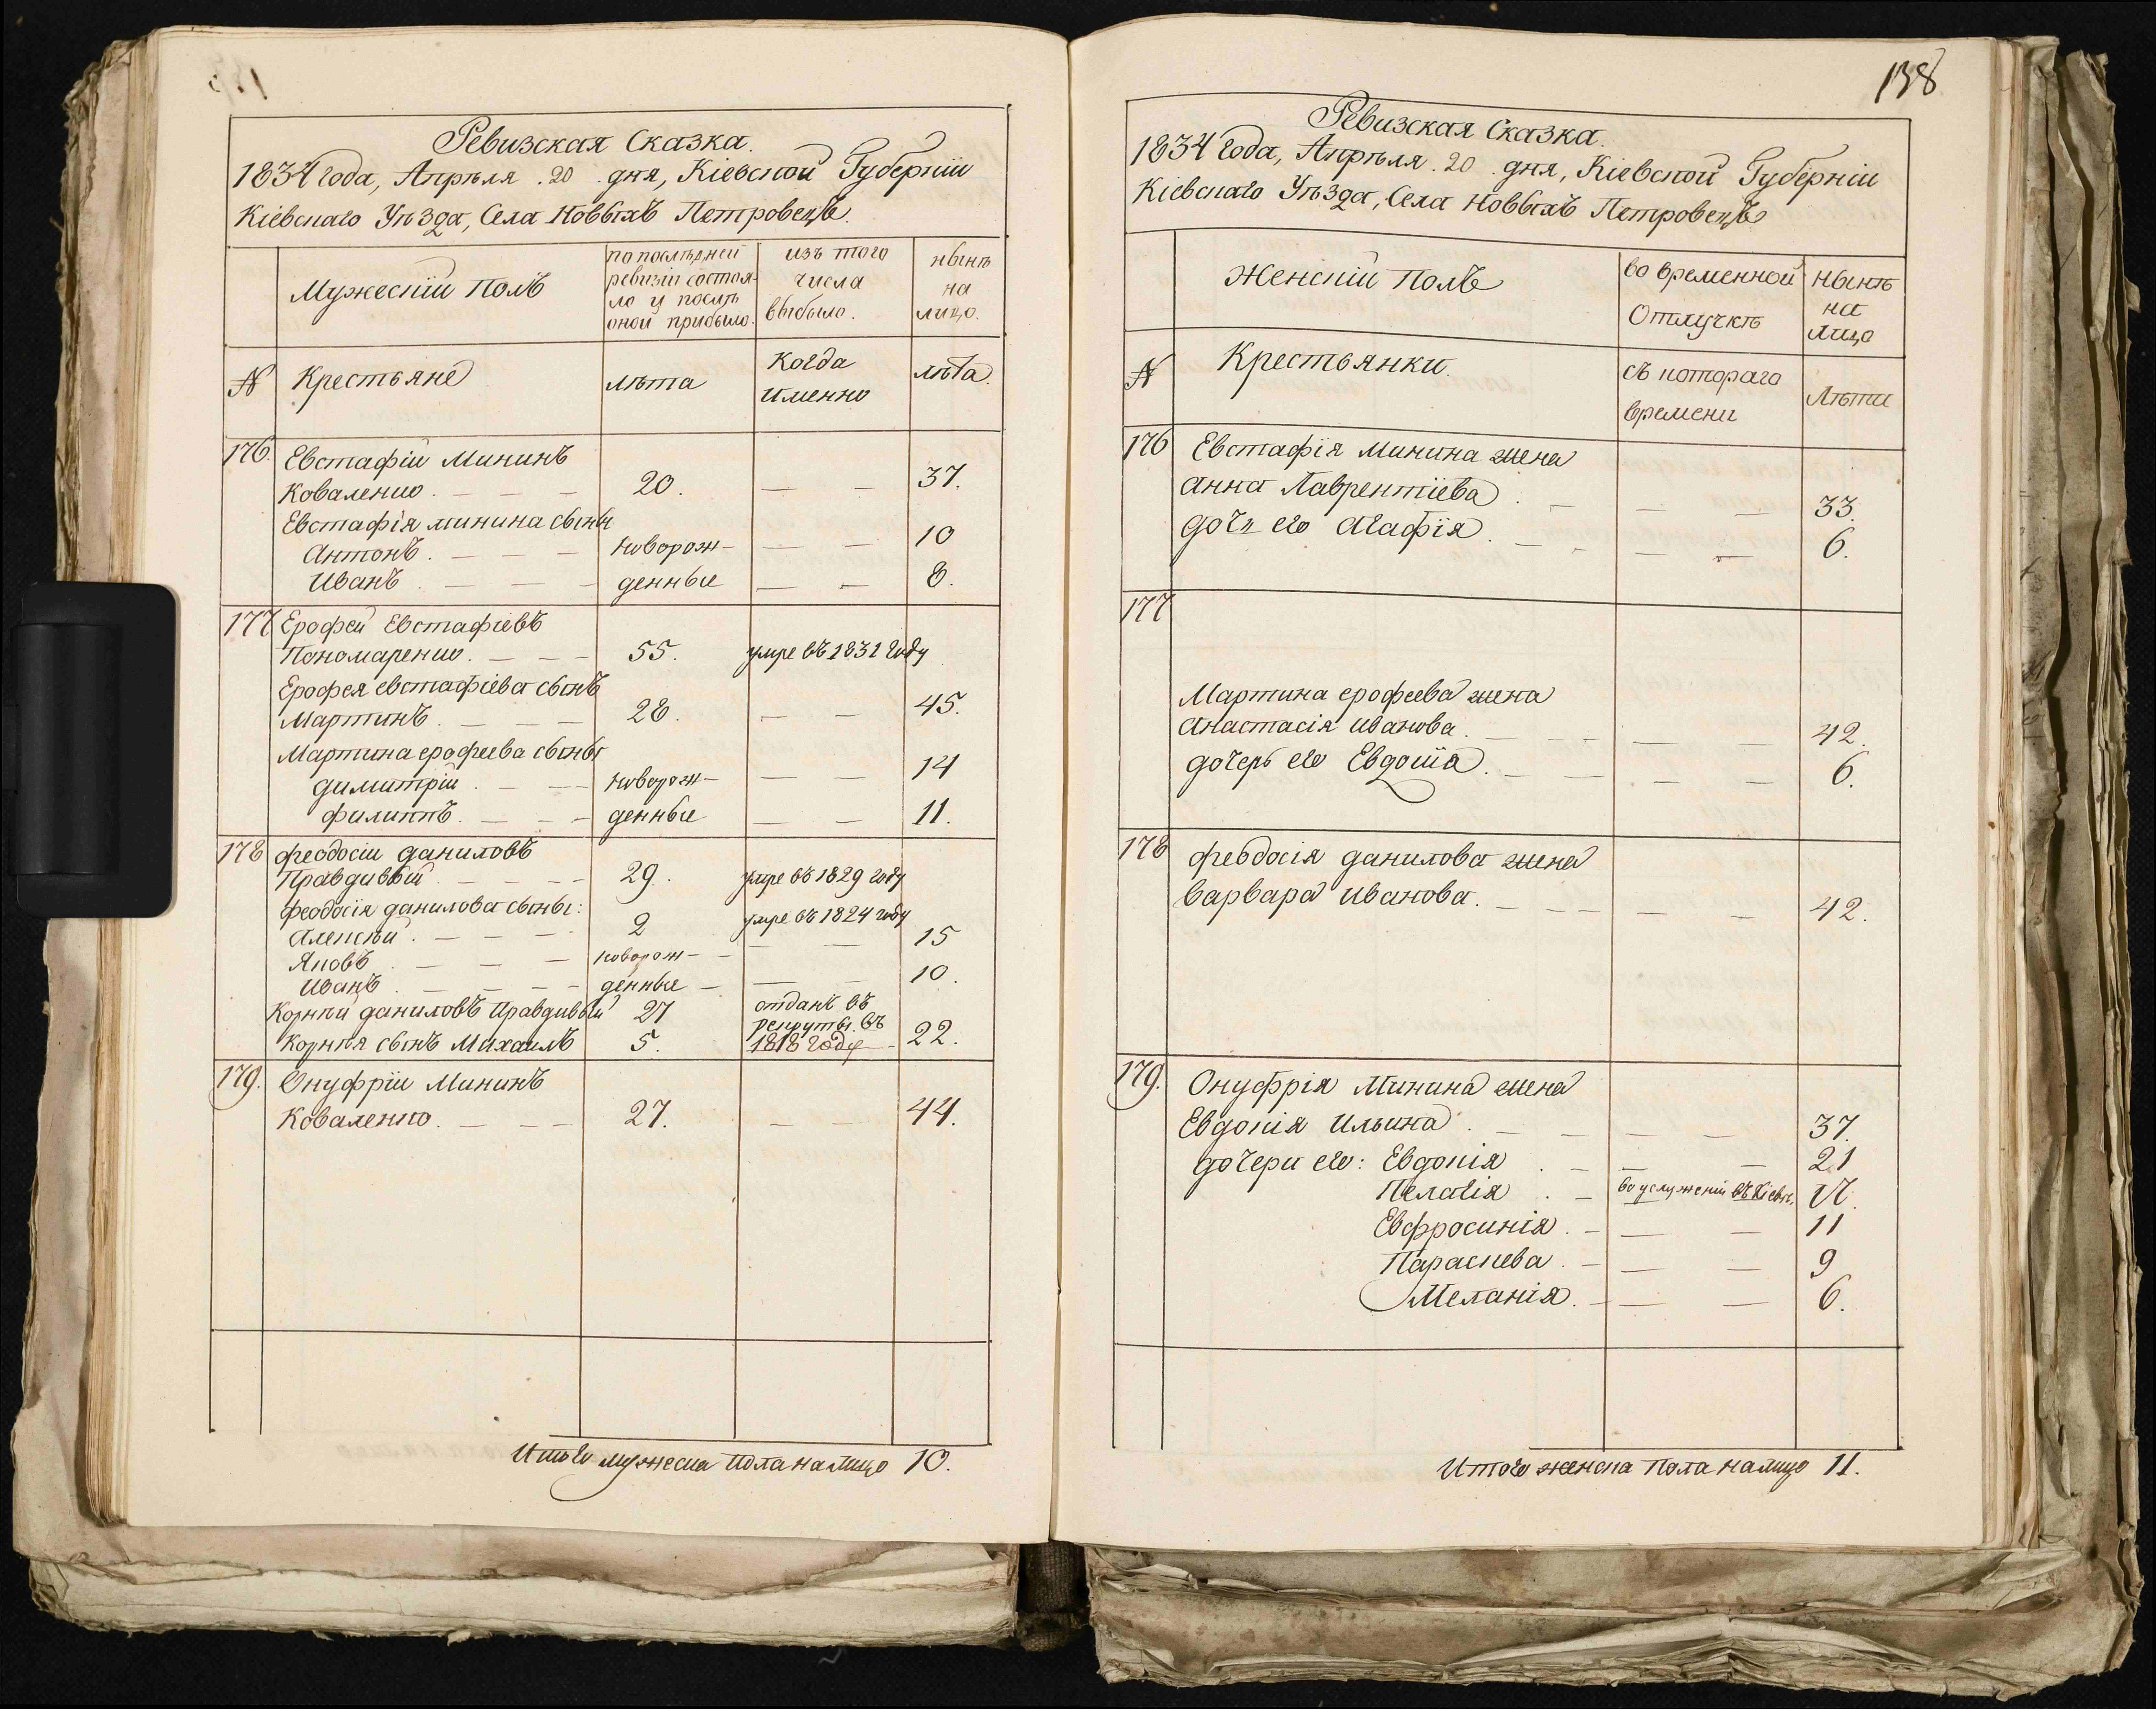 Ревизская Сказка.
1834 года, Апрѣля .20. дня, Кіевской Губерніи
Кіевскаго Уѣзда, Села Новыхъ Петровецъ.
Мужескій Полъ
по послѣдней
ревизіи состоя-
ло и послѣ
оной прибыло.
изъ того
числа
выбыло.
нынѣ
на
лицо.
№
Крестьяне
лѣта
Когда
именно
лѣта.
176.
Евстафій Мининъ
Коваленко. — — — 20. — — 37.
Евстафія минина сыны
Антонъ. — — — новорож- — — 10
Иванъ. — — — денные — — 8.
177
Ерофей Евстафіевъ
Пономаренко. — — — 55. умре въ 1831 году
Ерофея евстафіева сынъ
Мартинъ. — — — 28. — — 45.
Мартина ерофеева сыны
димитрій . — — новорож- — — 14
филиппъ. — — — денные — — 11.
178
феодосій даниловъ
Правдивый. — — — 29. умре въ 1829 году
феодосія данилова сыны:
Алексѣй. — — — 2 умре въ 1824 году
Яковъ . — — — новорож- — — 15
Иванъ . — — — денные — — 10.
Корнѣй даниловъ Правдивый 27 отданъ въ
рекруты. въ
Корнѣя сынъ Михаилъ 5. 1818 году — 22.
179.
Онуфрій Мининъ
Коваленко. — — — 27. — — 44.
Итого мужеска пола налицо 10.
138
Ревизская Сказка.
1834 года, Апрѣля .20. дня, Кіевской Губерніи
Кіевскаго Уѣзда, Села Новыхъ Петровецъ
Женскій Полъ
во временной
Отлучкѣ
нынѣ
на
лицо
№
Крестьянки.
съ котораго
времени
Лѣта
176
Евстафія Минина жена
Анна Лаврентіева . — — — 33.
дочь его Агафія. — — — — 6.
177
Мартина ерофеева жена
Анастасія иванова. — — — — 42.
дочерь его Евдокія. — — — — 6.
178
феодосія данилова жена
варвара Иванова. — — — — — 42.
179.
Онуфрія Минина жена
Евдокія Ильина . — — — — 37.
дочери его: Евдокія . — — — 21
Пелагія . — во услуженіи въ Кіевѣ,
Евфросинія. — — — 11
Параскева. — — — 9
Меланія. — — — 6.
Итого женска пола налицо 11.